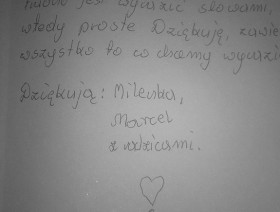 trudno jest wyrazić słowami,
wtedy proste Dziękuję, zawie
wszystko to co chcemy wyrazi
Dziękują: Milenka,
Marcel
z rodzicami.